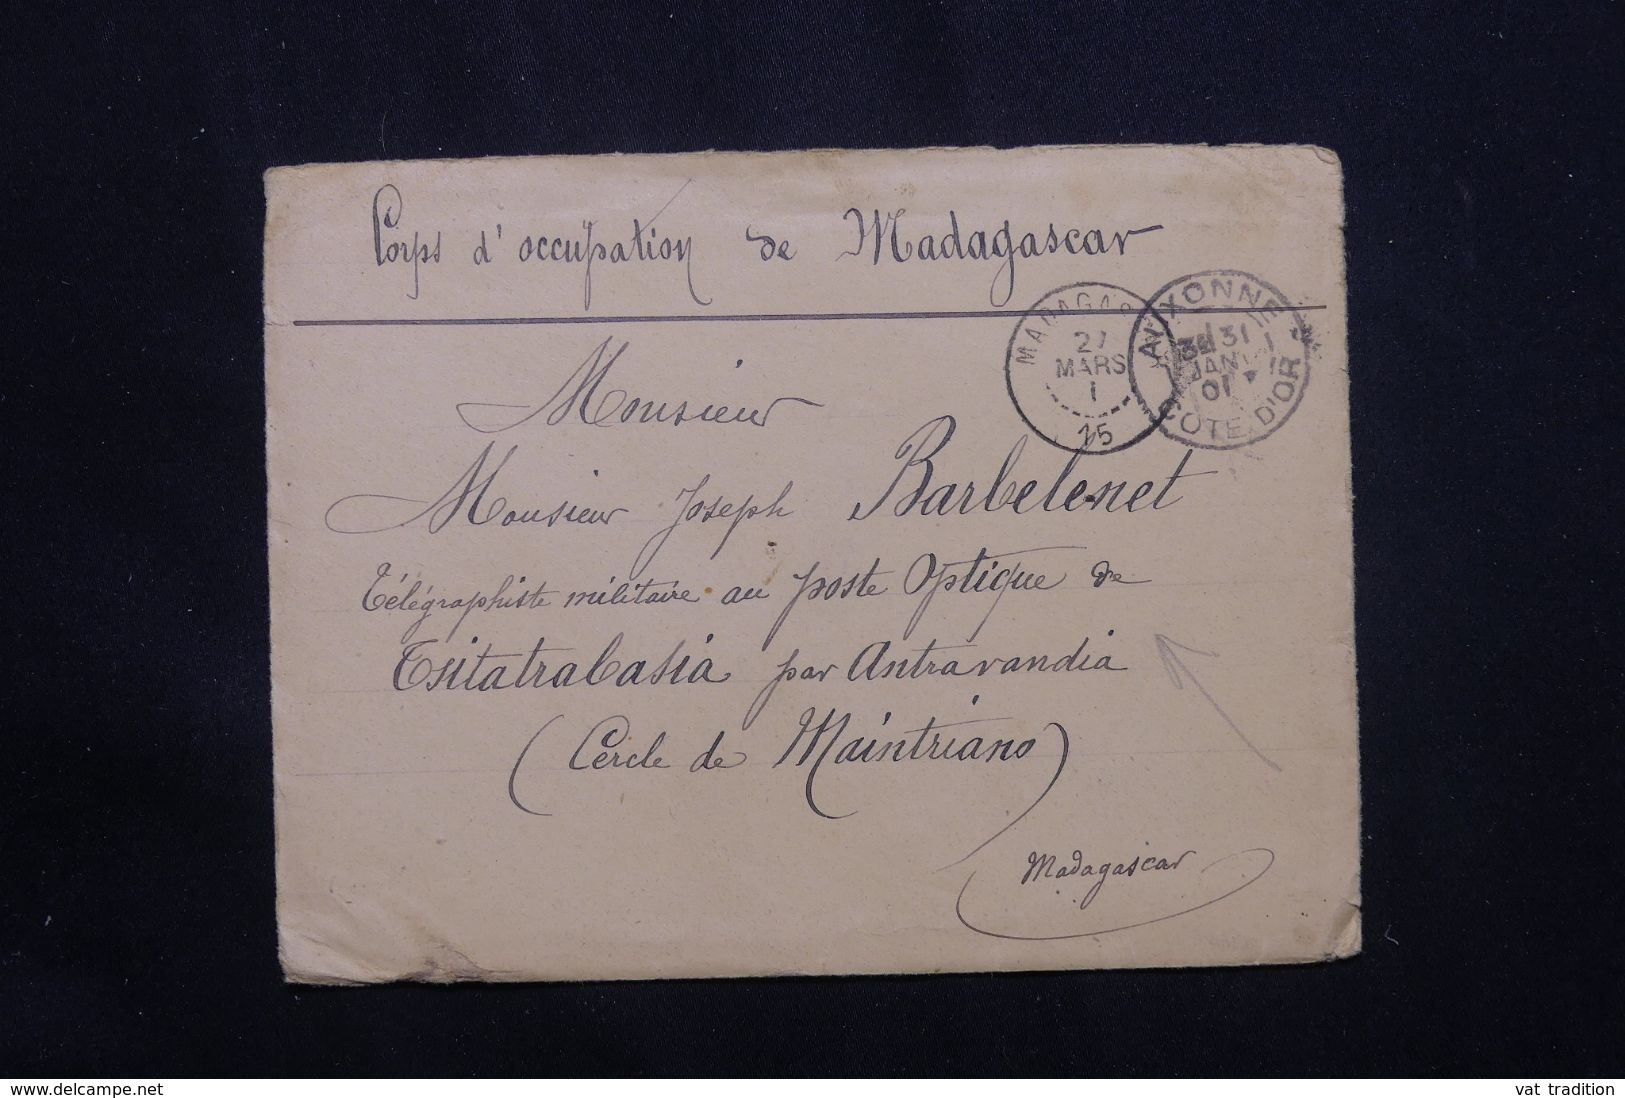 Corps d'occupation de Madagascar
MADAGAS
27
MARS
1
15
AUXONNE
31
JANV
01
COTE D'OR
Monsieur
Monsieur Joseph Barbelenet
Télégraphiste militaire au poste Optique de
Tsitatrabasia par Antravandia
(Cercle de Maintriano)
Madagascar
www.delcampe.net
vat_tradition